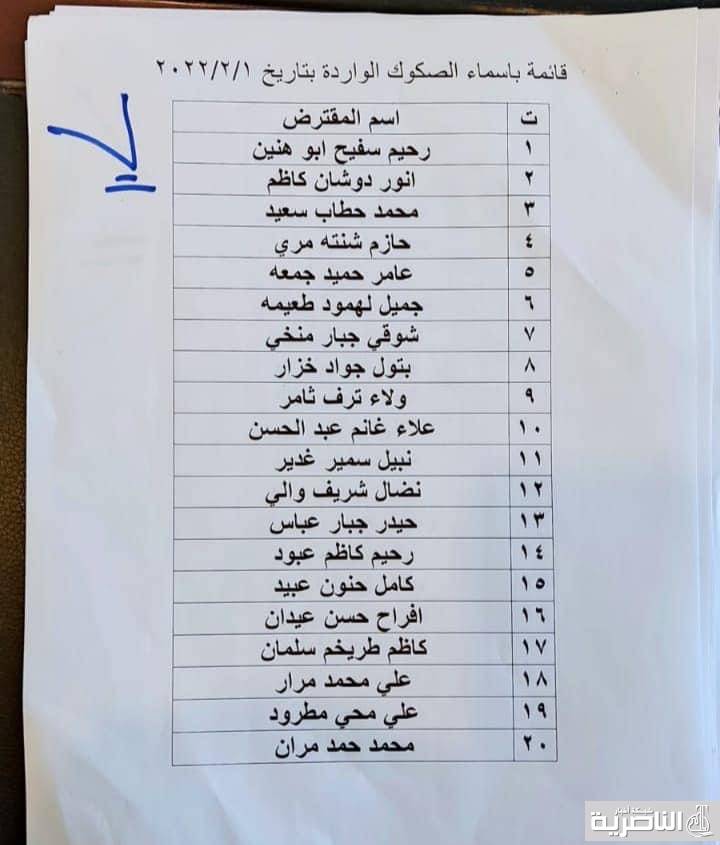 قائمة باسماء الصكوك الواردة بتاريخ ٢٠٢٢/٢/١
ت اسم المقترض
١ رحيم سفيح ابو هنين
٢ انور دوشان كاظم
٣ محمد حطاب سعيد
٤ حازم شنته مري
٥ عامر حميد جمعه
٦ جميل لهمود طعيمه
٧ شوقي جبار منخي
٨ بتول جواد خزار
٩ ولاء ترف ثامر
١٠ علاء غانم عبد الحسن
١١ نبيل سمير غدير
١٢ نضال شريف والي
١٣ حيدر جبار عباس
١٤ رحيم كاظم عبود
١٥ كامل حنون عبيد
١٦ افراح حسن عيدان
١٧ كاظم طريخم سلمان
١٨ علي محمد مرار
١٩ علي محي مطرود
٢٠ محمد حمد مران
شبكة أخبار
الناصرية